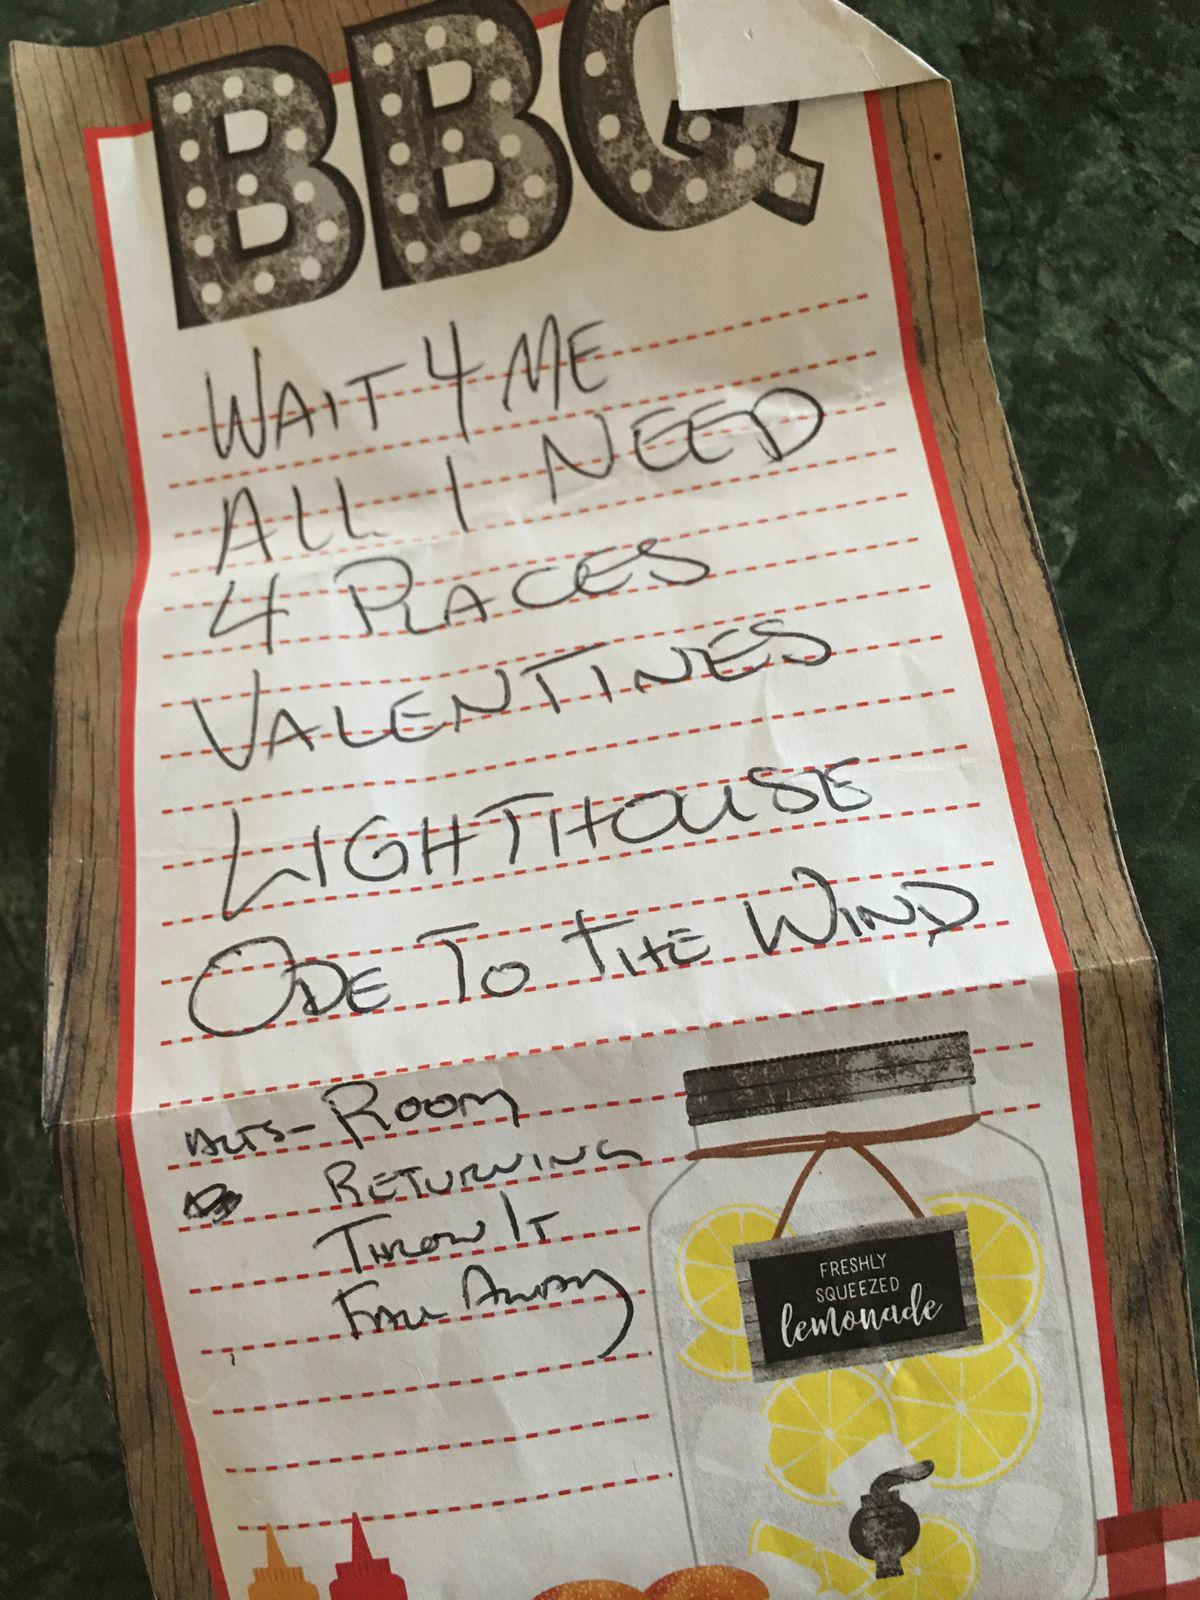 BBQ
WAIT 4 ME
ALL I NEED
4 PLACES
VALENTINES
LIGHTHOUSE
ODE TO THE WIND
ALTS- ROOM
RETURNING
THROW IT
FALL AWAY
FRESHLY
SQUEEZED
lemonade